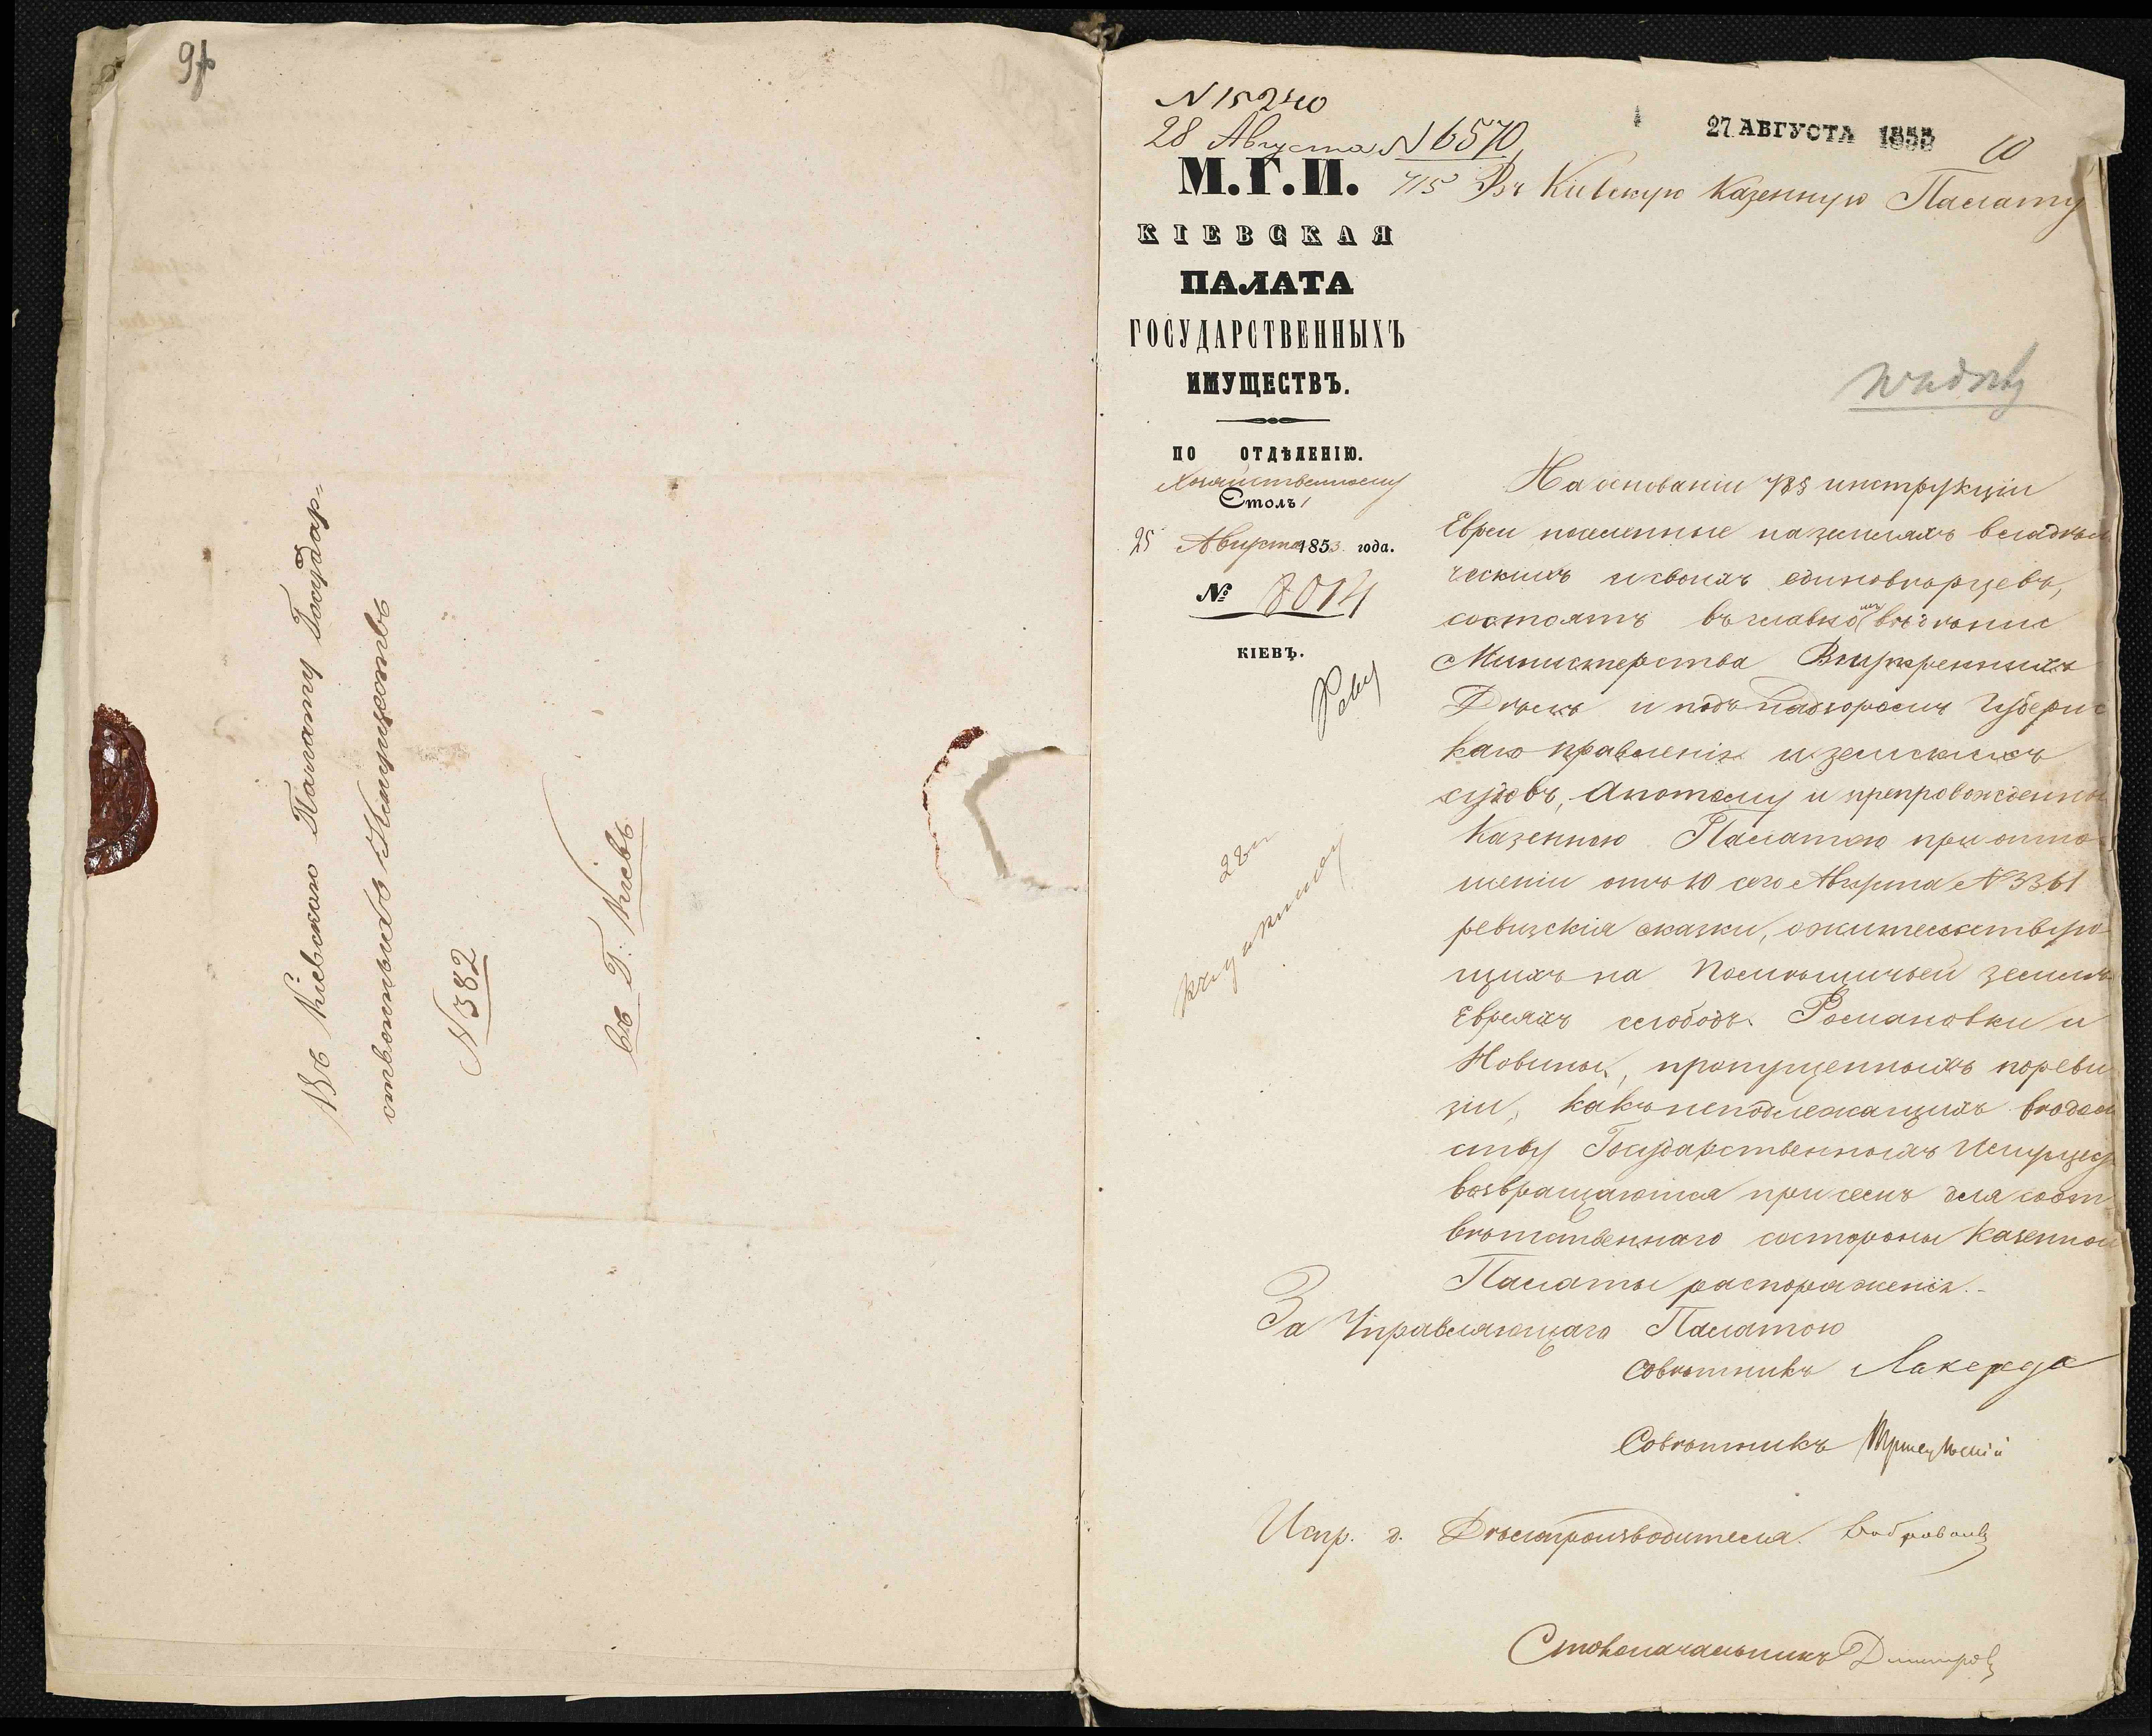 Въ Кіевскую Палату Государ-
ственныхъ Имуществъ
N 382
въ Г. Кіевъ
N 15240
28 Августа N 6570
715
27 АВГУСТА 1853
10
М.Г.И.
КІЕВСКАЯ
ПАЛАТА
ГОСУДАРСТВЕННЫХЪ
ИМУЩЕСТВЪ.
ПО ОТДѢЛЕНІЮ.
Хозяйственному
Столъ 1
25 Августа 1853 года.
№ 8014
КІЕВЪ.
Въ Кіевскую Казенную Палату
На основаніи 78§ инструкціи
Евреи поселенные на земляхъ владѣль
ческихъ и своихъ единовѣрцевъ,
состоятъ въ главномъ вѣденіи
Министерства Внутреннихъ
Дѣлъ и подъ надзоромъ Губернс
каго правленія и земскихъ
судовъ, а потому и препровожденны
Казенною Палатою при отно
шеніи отъ 10 сего Августа N 3361
ревизскія сказки, о жительствую
щихъ на Помѣщичьей земль
Евреяхъ слободъ Романовки и
Новины, пропущенныхъ по реви
зіи, какъ неподлежащихъ вѣдом
ству Государственныхъ Имущес
возвращаются при семъ для соот
вѣтственнаго со стороны Казенной
Палаты распоряженія.-
За Управляющаго Палатою
Совѣтникъ
Совѣтникъ
Испр. д. Дѣлопроизводителя
Столоначальникъ Димитровъ